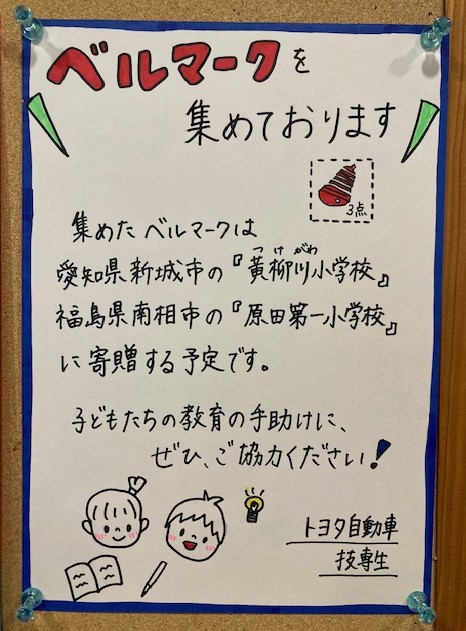 ベルマークを
集めております
3点
集めたベルマークは
つげがわ
愛知県新城市の『黄柳川小学校』
福島県南相市の『原田第一小学校』
に寄贈する予定です。
子どもたちの教育の手助けに、
ぜひ、ご協力ください!
トヨタ自動車
技専生